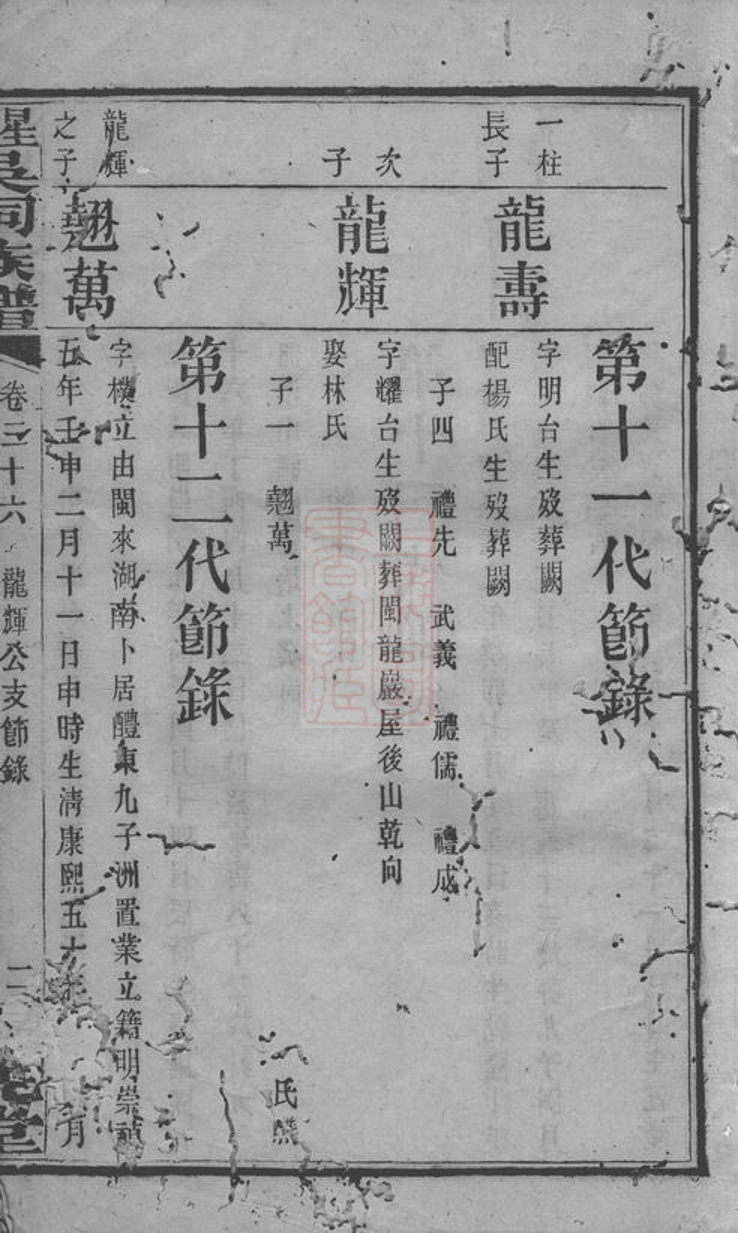 第十一代節錄
一柱
長子
龍壽
字明台生歿葬闕
配楊氏生歿葬闕
子四 禮先 武義 禮儒 禮成
次
子
龍輝
字耀台生歿闕葬閩龍巖屋後山乾向
娶林氏
子一 翹萬
氏
第十二代節錄
龍輝
之子
翹萬
字樸立由閩來湖南卜居醴東九子洲置業立籍明崇禎
五年壬申二月十一日申時生淸康熙五十
月
吳同族譜
卷三十六 龍輝公支節錄 二
堂